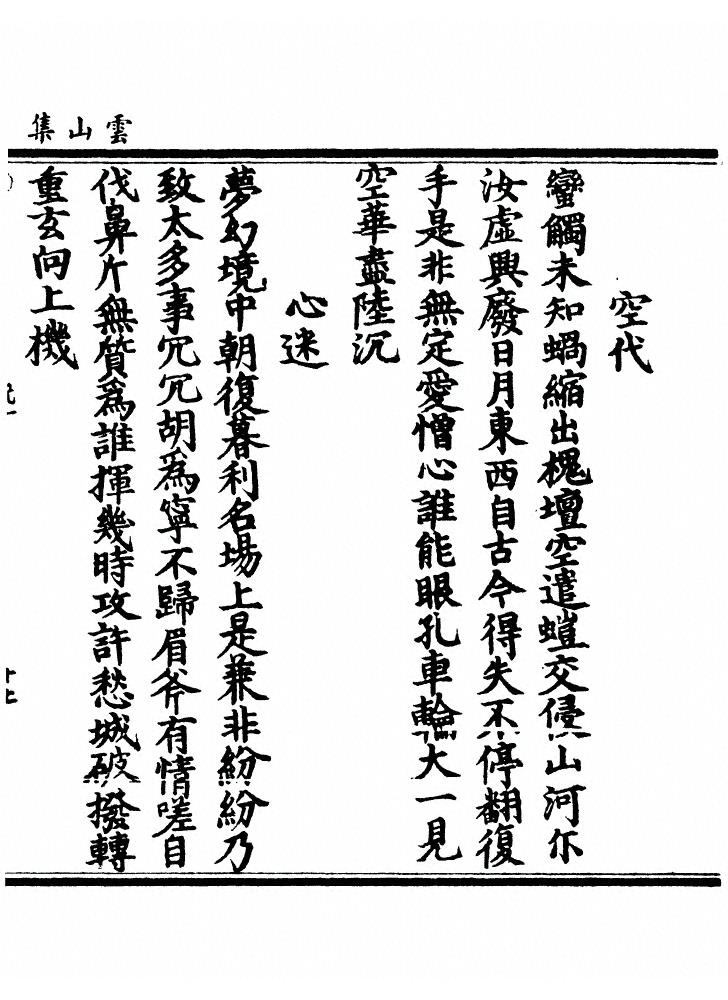 雲山集
空代
蠻觸未知蝸縮出槐壇空遣螘交侵山河尔
汝虛興廢日月東西自古今得失不停翻復
手是非無定愛憎心誰能眼孔車輪大一見
空華盡陸沉
心迷
夢幻境中朝復暮利名場上是兼非紛紛乃
致太多事冗冗胡為寧不歸眉斧有情嗟自
伐鼻斤無質為誰揮幾時攻許愁城破撥轉
重玄向上機
十七